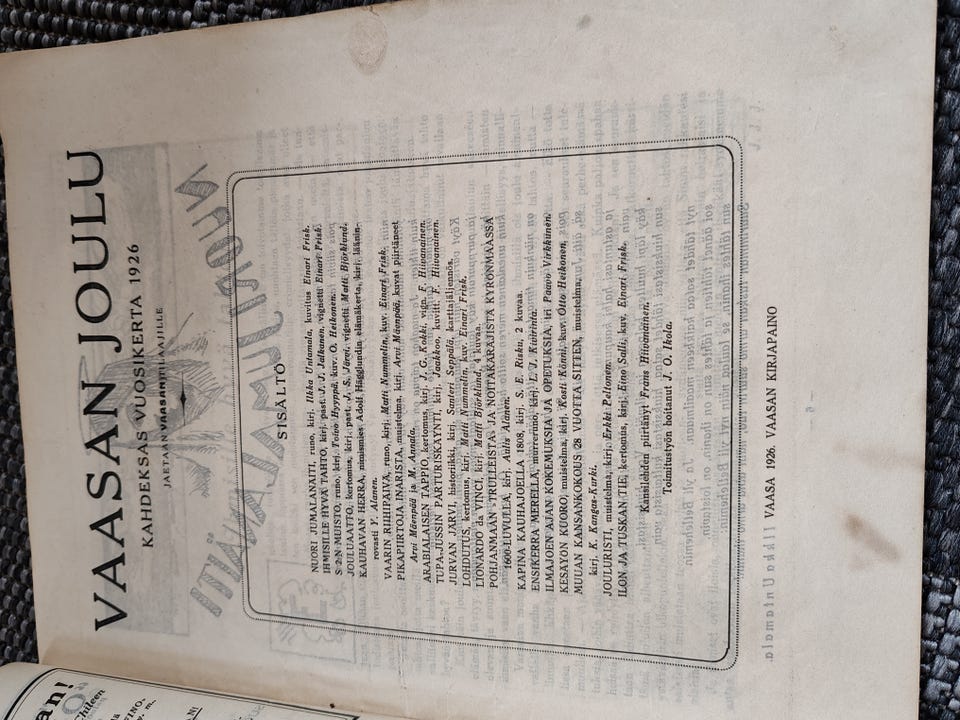 VAASAN JOULU
KAHDEKSAS VUOSIKERTA 1926
JAETAAN VAASANTILAAJILLE
SISÄLTÖ
NUORI JUMALANÄITI, runo, kirj. Ilkka Untamala, kuvitus Einari Frisk.
IHMISILLE HYVÄ TAHTO, kirj. past. J. J. Jalkanen, vignetti Einari Frisk.
MUISTO, runo, kirj. Toivo Hyyppä, kuv. O. Heikonen.
JOULUAATTO, kertomus, kirj. past. J. S. Järvi, vignetti Matti Björklund.
KAUHAVAN HERRA, nimismies Adolf Hägglundin elämäkerta, kirj. läänin-
rovasti Y. Alanen.
VAARIN RIIHIPÄIVÄ, runo, kirj. Matti Nummelin, kuv. Einari Frisk.
PIKAPIIRTOJA INARISTA, muistelma, kirj. Arvi Mäenpää, kuvat piirtäneet
Arvi Mäenpää ja M. Annala.
ARABIALAISEN TAPPIO, kertomus, kirj. J. G. Kokki, vign. F. Hiivanainen.
TUPA-JUSSIN PARTURISKÄYNTI, kirj. Jaakkoo, kuvitti F. Hiivanainen.
JURVAN JÄRVI, historiikki, kirj. Santeri Seppälä, karttajäljennös.
LOHDUTUS, kertomus, kirj. Matti Nummelin, kuv. Einari Frisk.
LIONARDO da VINCI, kirj. Matti Björklund, 4 kuvaa.
POHJANMAAN TRULLEISTA JA NOITAKÄRÄJISTÄ KYRÖNMAASSA
1600-LUVULLA, kirj. Aulis Alanen.
KAPINA KAUHAJOELLA 1808, kirj. S. E. Rinku, 2 kuvaa.
ENSIKERRA MERELLÄ, murreruno, kirj. L. J. Kiihrihtä.
ILMAJOEN AJAN KOKEMUKSIA JA OPETUKSIA, kirj. Paavo Virkkunen.
KESÄYÖN KUORO, muistelma, kirj. Kosti Köni, kuv. Otto Heikonen.
MUUAN KANSANKOKOUS 28 VUOTTA SITTEN, muistelma,
kirj. K. Kangas-Kurki.
JOULURISTI, muistelma, kirj. Erkki Peltonen.
ILON JA TUSKAN TIE, kertomus, kirj. Eino Salli, kuv. Einari Frisk.
Kansilehden piirtänyt Frans Hiivanainen.
Toimitustyön hoitanut J. O. Ikola.
VAASA 1926, VAASAN KIRJAPAINO
an!
Chileen